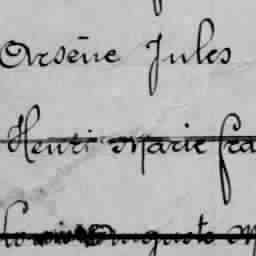 Orsène Jules
Henri Marie fra
Auguste